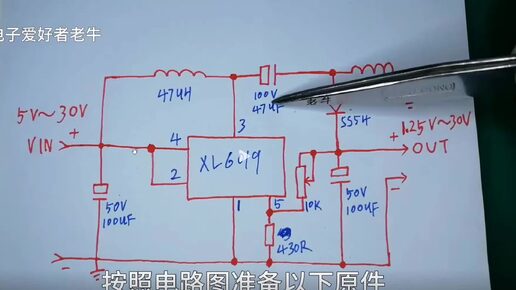 电子爱好者老牛
47UH
100V
47UF
5V~30V
VIN
+
3
4
2
XL6019
1
5
SS54
+1.25V~30V
OUT
10K
50V
100UF
50V
100UF
430R
按照电路图准备以下原件